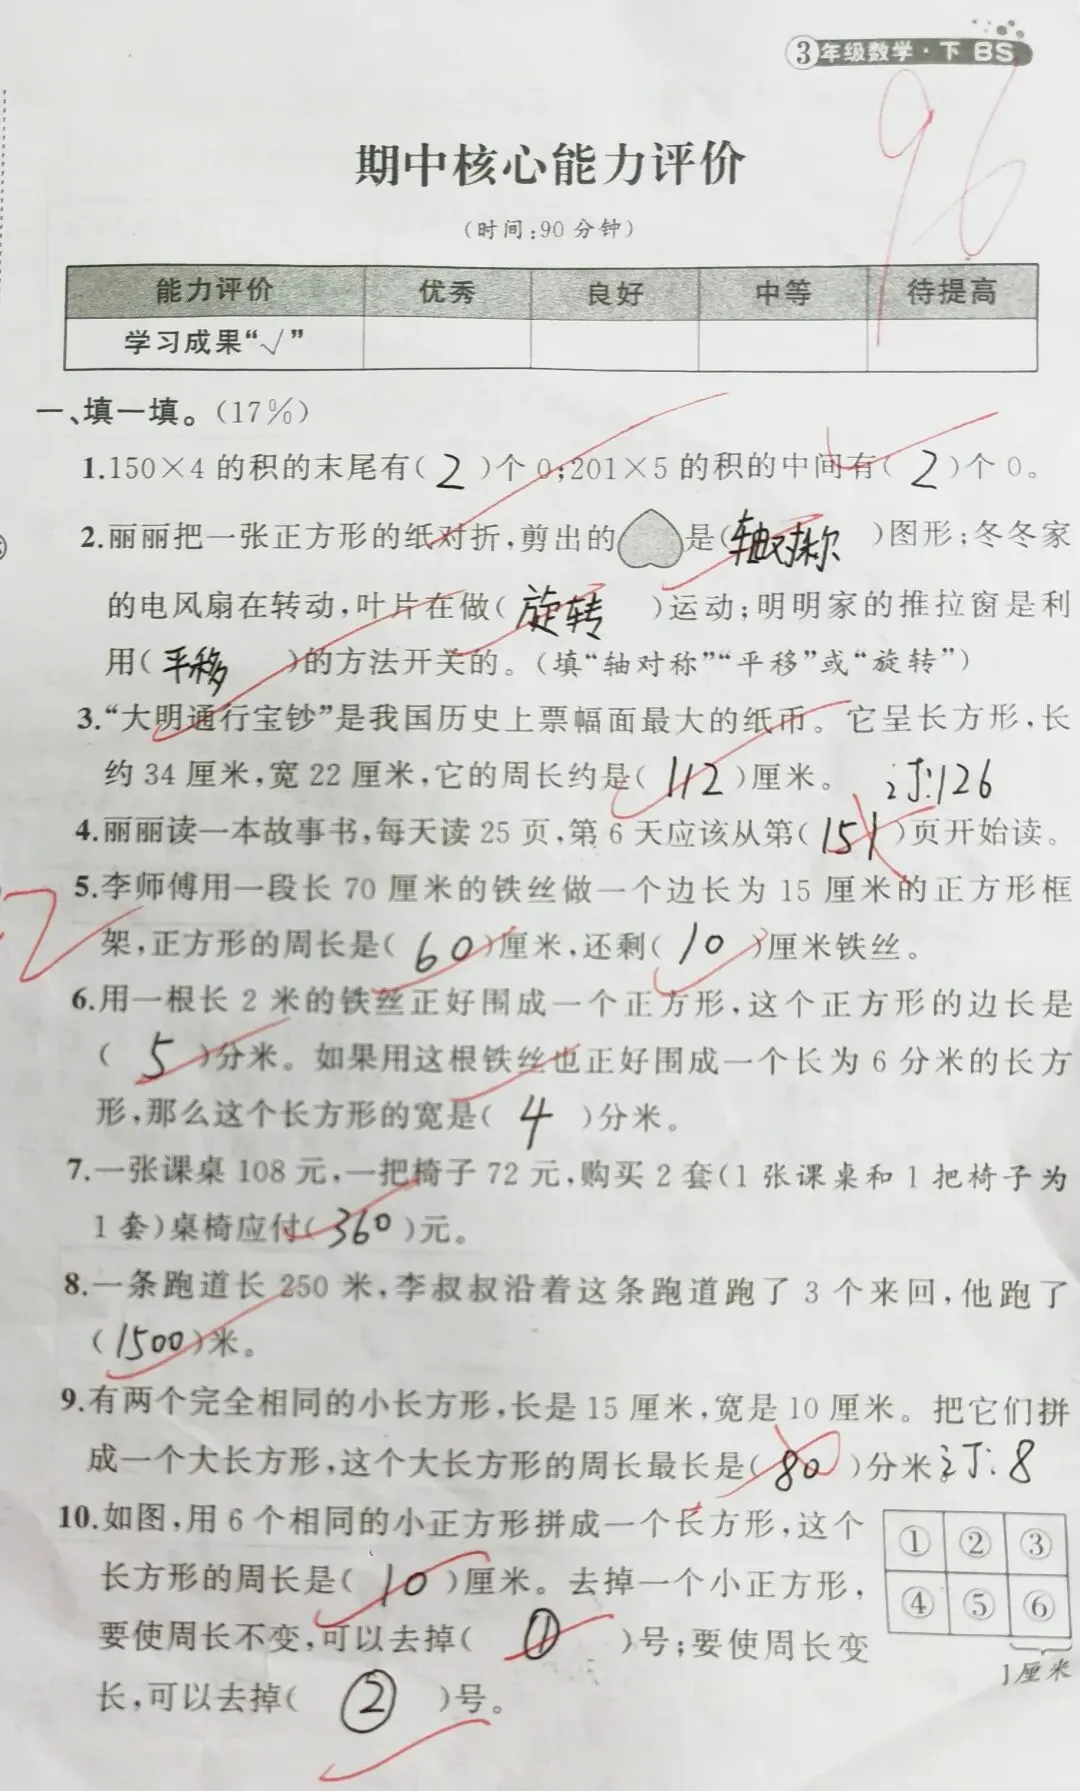 3年级数学·下 BS
96
期中核心能力评价
(时间:90分钟)
能力评价 优秀 良好 中等 待提高
学习成果“√”
一、填一填。(17%)
1.150×4的积的末尾有( 2 )个0;201×5的积的中间有( 2 )个0。
2.丽丽把一张正方形的纸对折,剪出的 是( 轴对称 )图形;冬冬家
的电风扇在转动,叶片在做( 旋转 )运动;明明家的推拉窗是利
用( 平移 )的方法开关的。(填“轴对称”“平移”或“旋转”)
3.“大明通行宝钞”是我国历史上票幅面最大的纸币。它呈长方形,长
约34厘米,宽22厘米,它的周长约是( 112 )厘米。 订:126
4.丽丽读一本故事书,每天读25页,第6天应该从第( 151 )页开始读。
-2
5.李师傅用一段长70厘米的铁丝做一个边长为15厘米的正方形框
架,正方形的周长是( 60 )厘米,还剩( 10 )厘米铁丝。
6.用一根长2米的铁丝正好围成一个正方形,这个正方形的边长是
( 5 )分米。如果用这根铁丝也正好围成一个长为6分米的长方
形,那么这个长方形的宽是( 4 )分米。
7.一张课桌108元,一把椅子72元,购买2套(1张课桌和1把椅子为
1套)桌椅应付( 360 )元。
8.一条跑道长250米,李叔叔沿着这条跑道跑了3个来回,他跑了
( 1500 )米。
9.有两个完全相同的小长方形,长是15厘米,宽是10厘米。把它们拼
成一个大长方形,这个大长方形的周长最长是( 80 )分米。订:8
10.如图,用6个相同的小正方形拼成一个长方形,这个
长方形的周长是( 10 )厘米。去掉一个小正方形,
要使周长不变,可以去掉( ① )号;要使周长变
长,可以去掉( ② )号。
① ② ③
④ ⑤ ⑥
1厘米